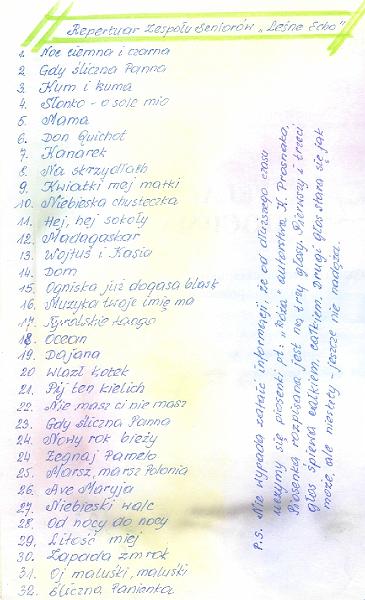 Repertuar Zespołu Seniorów „Leśne Echo"
1. Noc ciemna i czarna
2. Gdy śliczna Panna
3. Kum i kuma
4. Słonko - o sole mio
5. Mama
6. Don Quichot
7. Kanarek
8. Na skrzydłach
9. Kwiatki mej matki
10. Niebieska chusteczka
11. Hej, hej sokoły
12. Madagaskar
13. Wojtuś i Kasia
14. Dom
15. Ogniska już dogasa blask
16. Muzyka twoje imię ma
17. Rywalskie tango
18. Ocean
19. Dajana
20 Wlazł kotek
21. Pij ten kielich
22. Nie masz ci nie masz
23. Gdy śliczna Panna
24. Nowy rok bieży
24 Żegnaj Pamelo
25. Marsz, marsz Polonia
26. Ave Maryja
27. Niebieski walc
28. Od nocy do nocy
29. Litość miej
30. Zapada zmrok
31. Oj maluśki, maluśki
32. Śliczna Panienka
P.s. Nie wypada zataić informacji, że od dłuższego czasu
uczymy się piosenki pt: „Róża" autorstwa K. Prosnaka.
Piosenka rozpisana jest na trzy głosy. Pierwszy i trzeci
głos śpiewa całkiem, całkiem. Drugi głos stara się jak
może, ale niestety - jeszcze nie nadąża.